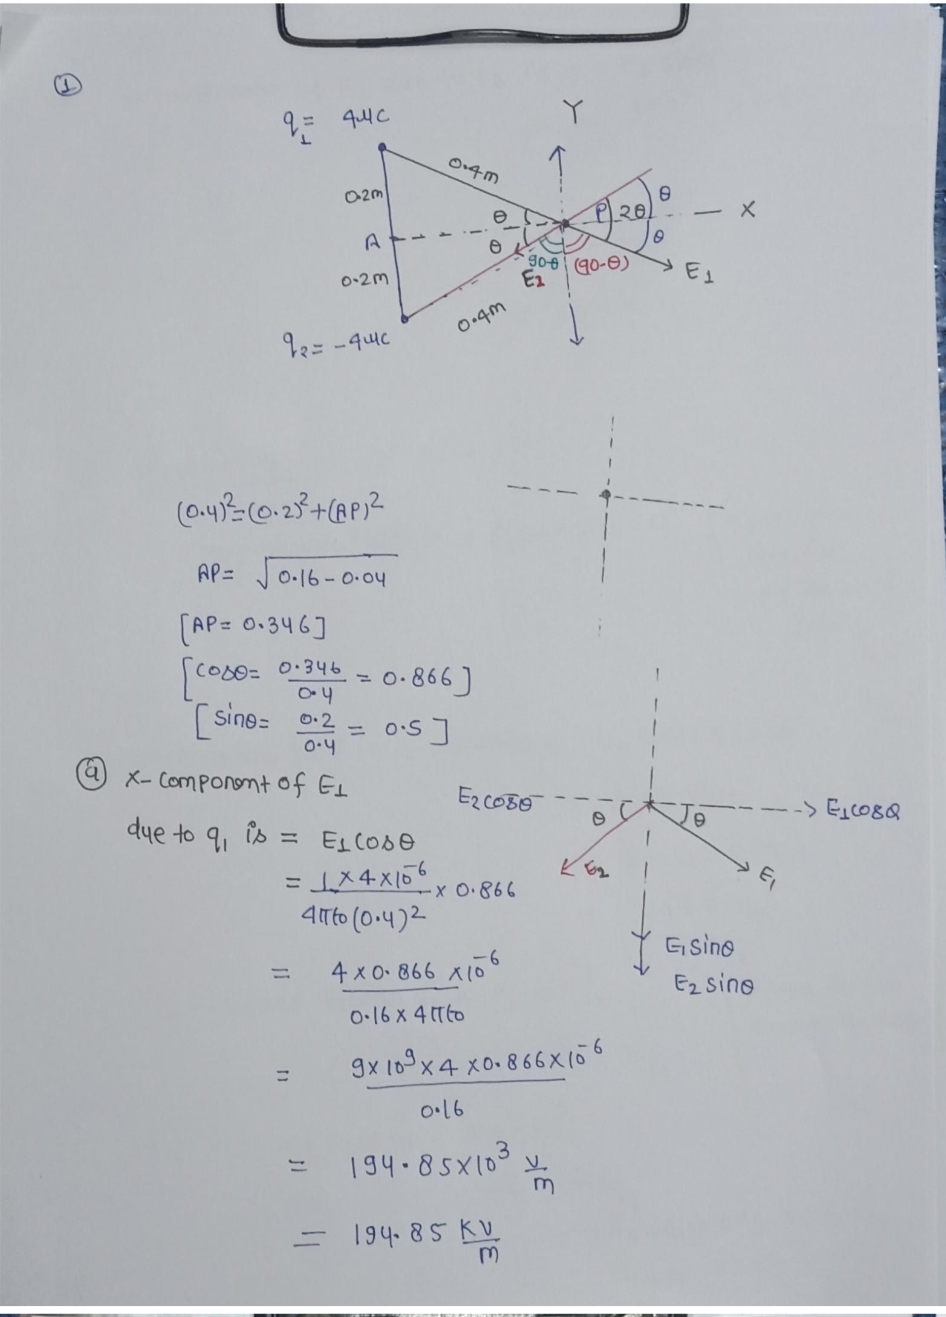 ①
q₁ = 4μC
Y
0.4m
0.2m
θ
P
2θ
θ
X
A
θ
θ
90-θ
(90-θ)
E₂
E₁
0.2m
0.4m
q₂ = -4μC
(0.4)² = (0.2)² + (AP)²
AP = √0.16 - 0.04
[AP = 0.346]
[cosθ = 0.346/0.4 = 0.866]
[sinθ = 0.2/0.4 = 0.5]
ⓐ x-component of E₁
due to q₁ is = E₁cosθ
= 1×4×10⁻⁶/4πϵ₀(0.4)² × 0.866
= 4×0.866×10⁻⁶/0.16×4πϵ₀
= 9×10⁹×4×0.866×10⁻⁶/0.16
= 194.85×10³ V/m
= 194.85 KV/m
E₂cosθ
θ
θ
E₁cosθ
E₂
E₁
E₁sinθ
E₂sinθ